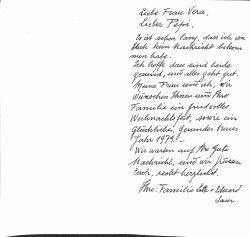 Liebe Frau Vera,
Lieber Pepi,
Es ist schon lang, dass ich von
Euch kein Nachricht bekom
men habe.
Ich hoffe dass sind beide
gesund, und alles geht gut.
Meine Frau und ich, wir
wünschen Ihnen und Ihre
Familie ein friedvolles
Weihnachtsfest, sowie ein
Glückliches, gesundes Neues
Jahr 1979.-
Wir warten auf Ihre Gute
Nachricht, und wir grüssen
Euch, recht herzlichst.
Ihre: Familie + Eduard